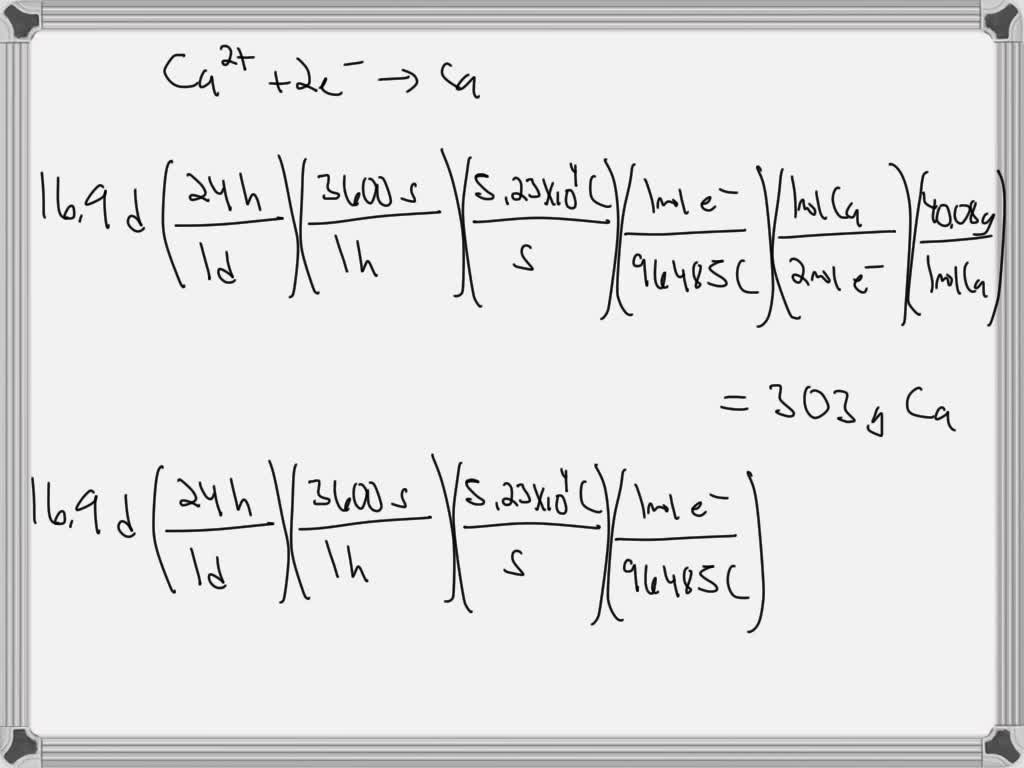 Ca²⁺ + 2e⁻ → Ca
16.9 d (24 h / 1 d)(3600 s / 1 h)(5.23×10⁴ C / s)(1 mol e⁻ / 96485 C)(1 mol Ca / 2 mol e⁻)(40.08 g / 1 mol Ca)
= 303 g Ca
16.9 d (24 h / 1 d)(3600 s / 1 h)(5.23×10⁴ C / s)(1 mol e⁻ / 96485 C)